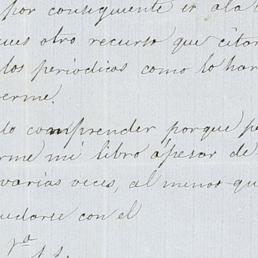 por consiguiente ir a la
otro recurso que citar
los periodicos como lo har
erme.
lo comprender porque pe
erme mi libro apesar de
varias veces, al menos qu
uedarse con el